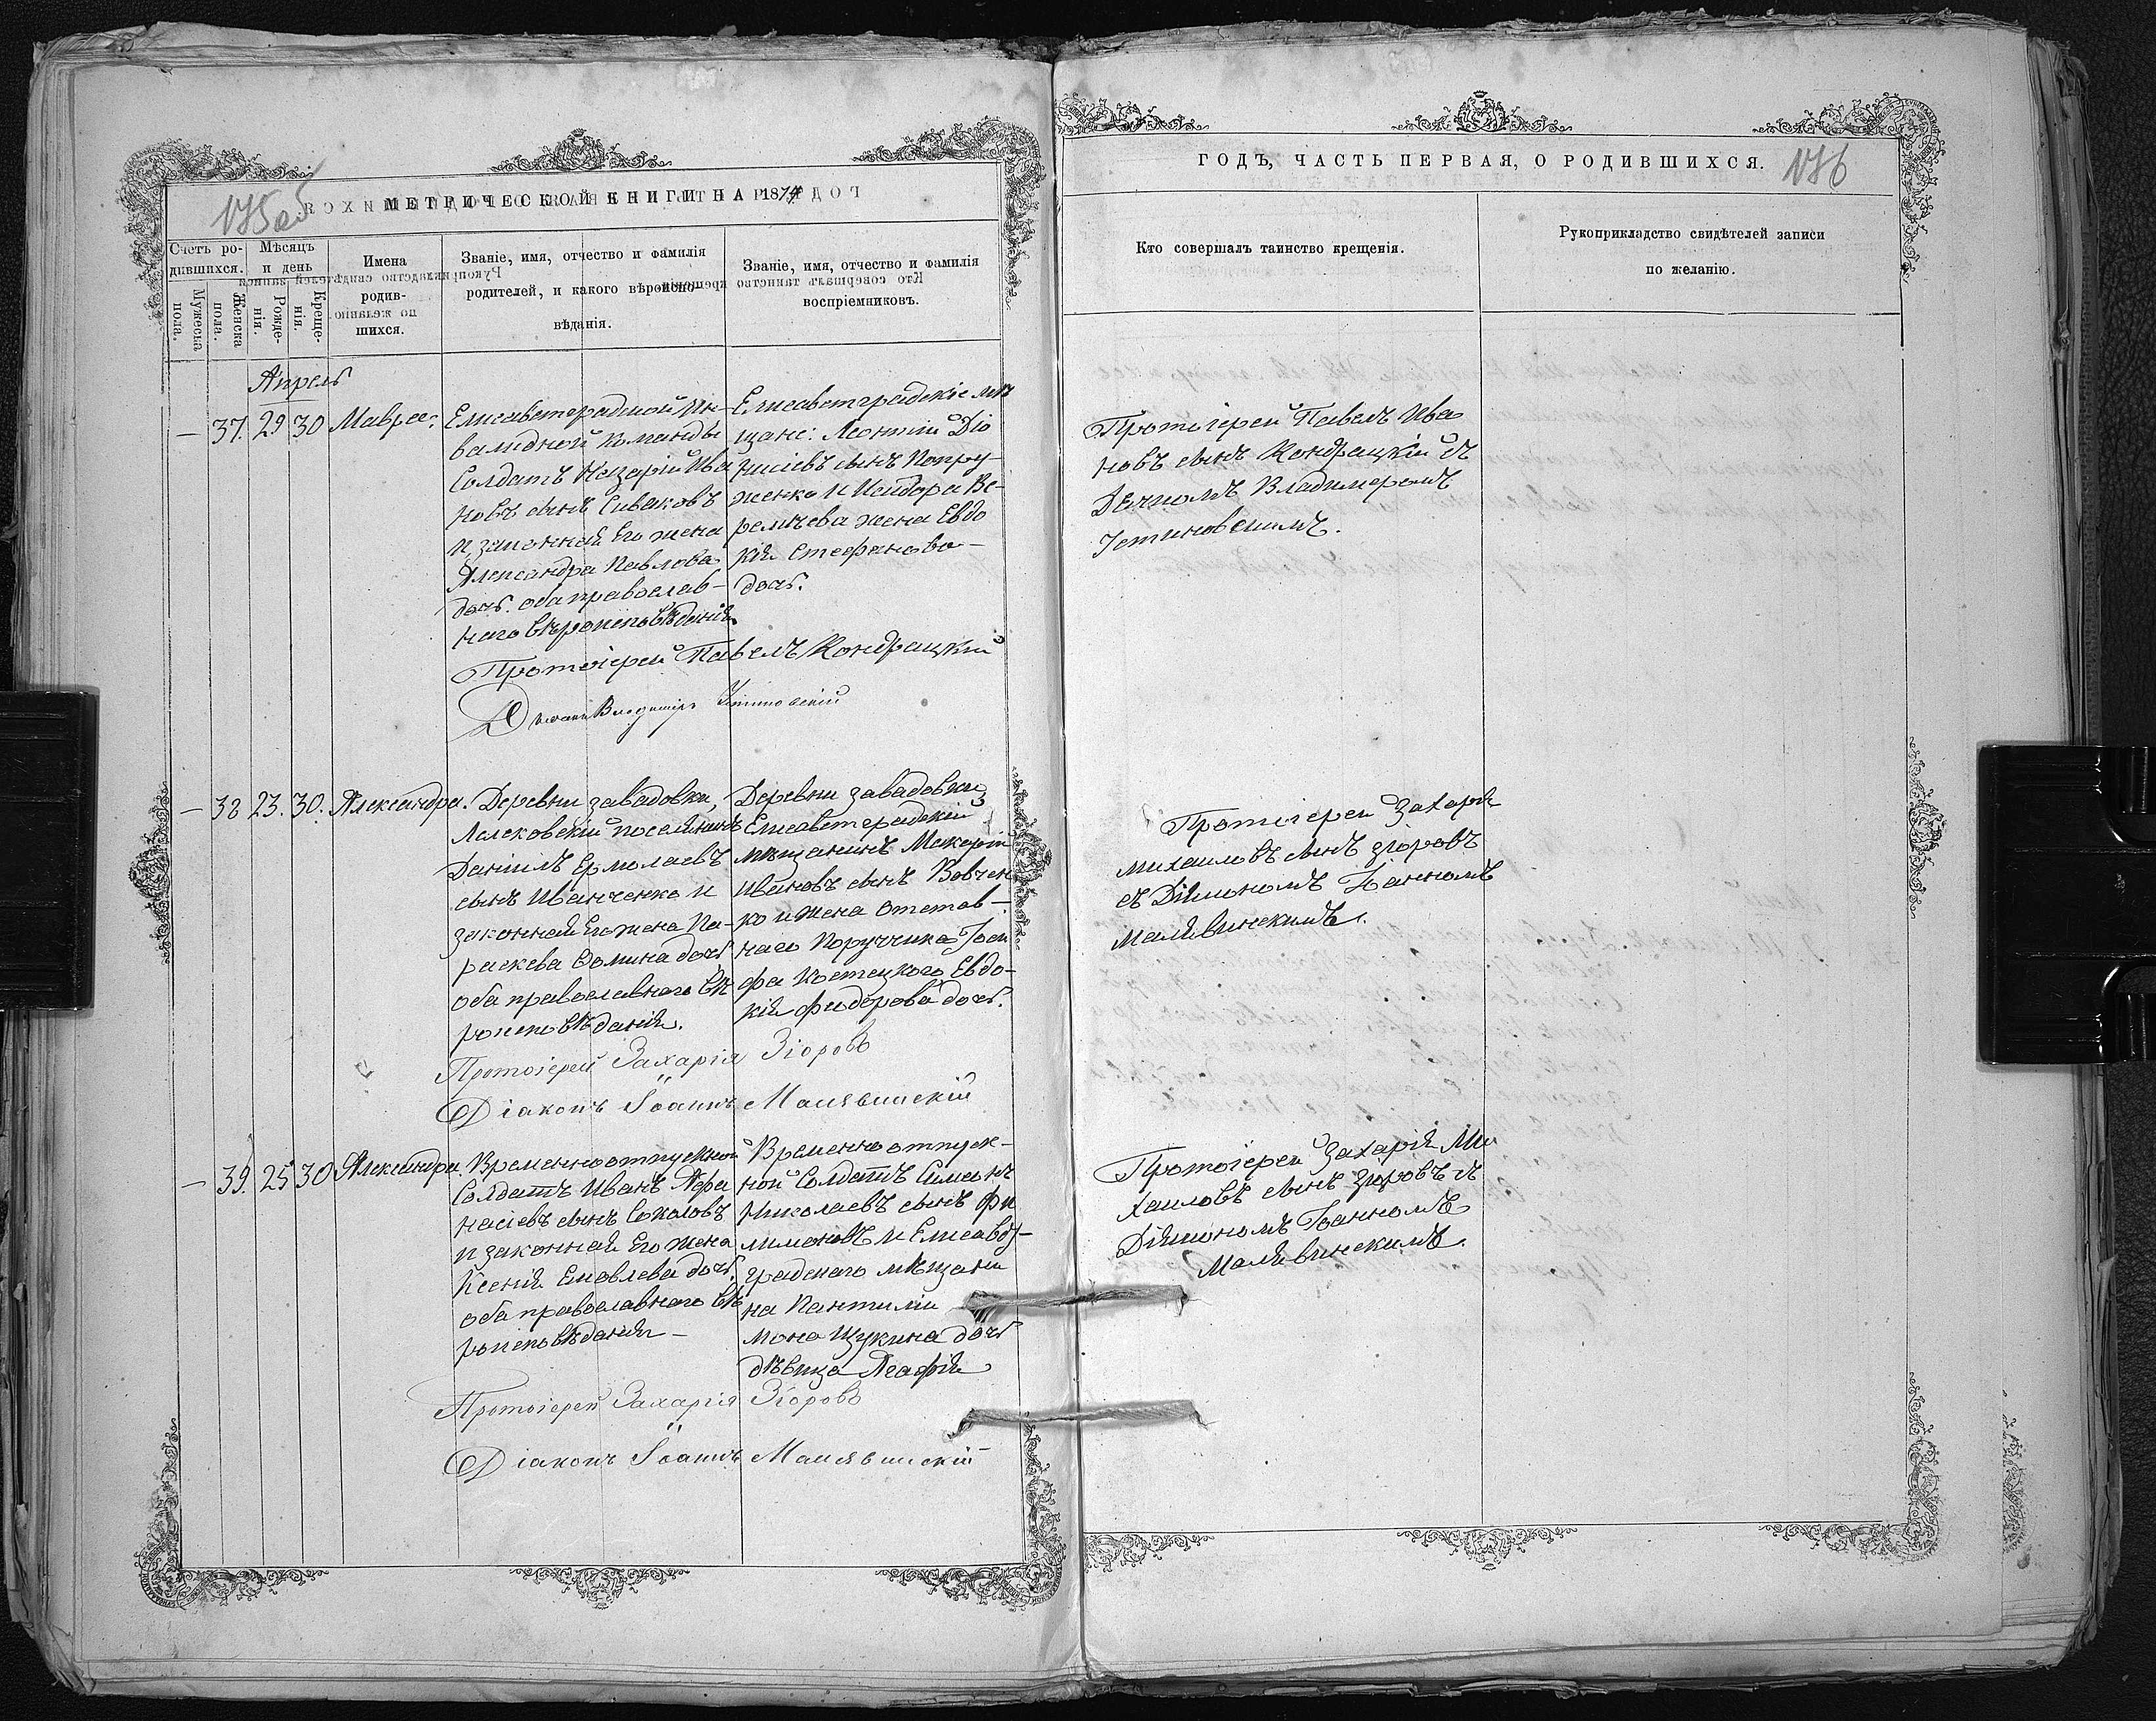 175об
МЕТРИЧЕСКОЙ КНИГИ НА 1874
Счетъ ро-
дившихся.
Мужеска
пола.
Женска
пола.
Мѣсяцъ
и день
Рожде-
нія.
Креще-
нія.
Имена
родив-
шихся.
Званіе, имя, отчество и фамилія
родителей, и какого вѣроиспо-
вѣданія.
Званіе, имя, отчество и фамилія
воспріемниковъ.
Апрель
— 37. 29 30 Мавра.
Елисаветградской Ин-
валидной команды
Солдатъ Назарій Ива
новъ сынъ Сиваковъ
и законная Его жена
Александра Павлова
дочь. оба православ-
наго вѣроисповѣданія.
Елисаветградскіе мѣ
щане: Леонтій Діо
нисіевъ сынъ Попру-
женко и Исидора Ве-
ремѣева жена Евдо
кія Стефанова
дочь.
Протоіерей Павелъ Кондрацкій
Діаконъ Владиміръ Устиновскій
— 38 23. 30. Александра.
Деревни Завадовки,
Лелековскій поселянинъ
Даніилъ Ермолаевъ
сынъ Иванченко и
законная Его жена Па-
раскева Фомина дочь
оба православнаго вѣ
роисповѣданія.
Деревни Завадовки
Елисаветградскій
мѣщанинъ Макарій
Ивановъ сынъ Вовчен
ко и жена отстав-
наго Поручика Іоси
фа Костецкого Евдо-
кія Фидорова дочь.
Протоіерей Захарія Зіоровъ
Діаконъ Іоаннъ Малявинскій
— 39. 25 30 Александра.
Временноотпускной
Солдатъ Иванъ Афа
насіевъ сынъ Соколовъ
и законная Его жена
Ксенія Яковлева дочь
оба православнаго вѣ
роисповѣданія —
Временно отпуск-
ной Солдатъ Симеонъ
Николаевъ сынъ Фи
лимоновъ и Елисавет-
градскаго мѣщани
на Пантили
мона Щукина дочь
дѣвица Агафія
Протоіерей Захарія Зіоровъ
Діаконъ Іоаннъ Малявинскій
ГОДЪ, ЧАСТЬ ПЕРВАЯ, О РОДИВШИХСЯ.
176
Кто совершалъ таинство крещенія.
Рукоприкладство свидѣтелей записи
по желанію.
Протоіерей Павелъ Ива
новъ сынъ Кондрацкій съ
Діакономъ Владимеромъ
Устиновскимъ.
Протоіерей Захарія
Михаиловъ сынъ Зіоровъ
съ Діякономъ Іоанномъ
Малявинскимъ.
Протоіерей Захарія Ми
хаиловъ сынъ Зіоровъ съ
Діякономъ Іоанномъ
Малявинскимъ.